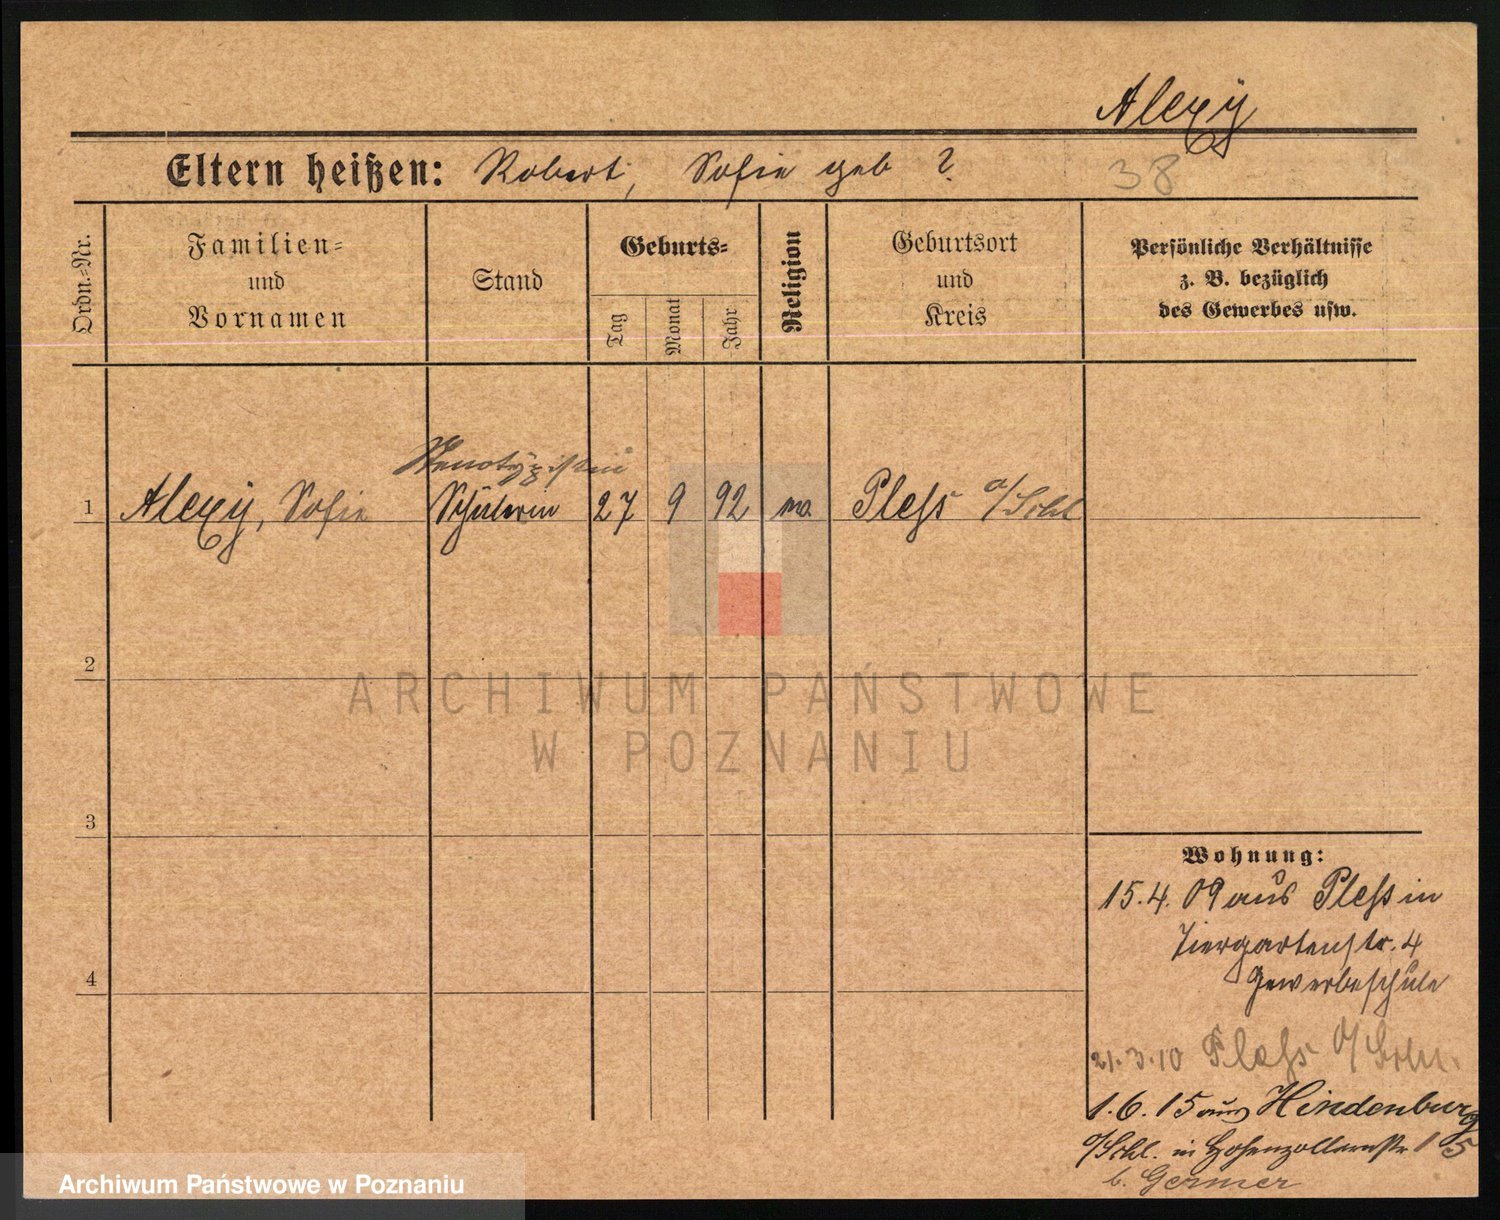 Alexÿ
Eltern heißen: Robert, Sofie geb ?
38
Ordn.=Nr.
Familien=
und
Vornamen
Stand
Geburts=
Tag
Monat
Jahr
Religion
Geburtsort
und
Kreis
Persönliche Verhältnisse
z. B. bezüglich
des Gewerbes usw.
Stenotypistin
1 Alexÿ, Sofie Schülerin 27 9 92 Pleß o/Schl
2
ARCHIWUM PAŃSTWOWE
W POZNANIU
3
Wohnung:
15.4.09 aus Pleß in
Tiergartenstr. 4
Gewerbeschule
4
21.3.10 Pleß o/Schl.
1.6.15 aus Hindenburg
o/Schl. in Hohenzollernstr
b. Germer
Archiwum Państwowe w Poznaniu